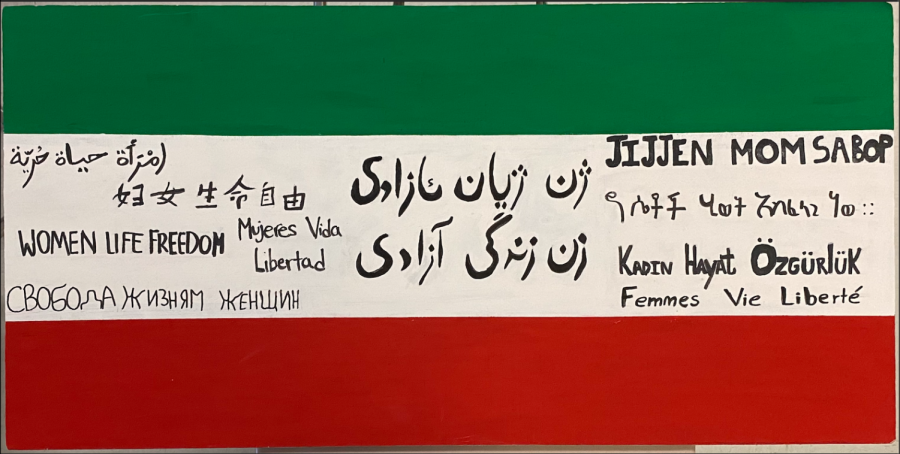 امْرَأة حياة حُريّة
妇女生命自由
WOMEN LIFE FREEDOM
Mujeres Vida
Libertad
СВОБОДА ЖИЗНЯМ ЖЕНЩИН
ژن ژیان ئازادی
زن زندگی آزادی
JIJJEN MOM SABOP
KADIN HAYAT ÖZGÜRLÜK
Femmes Vie Liberté